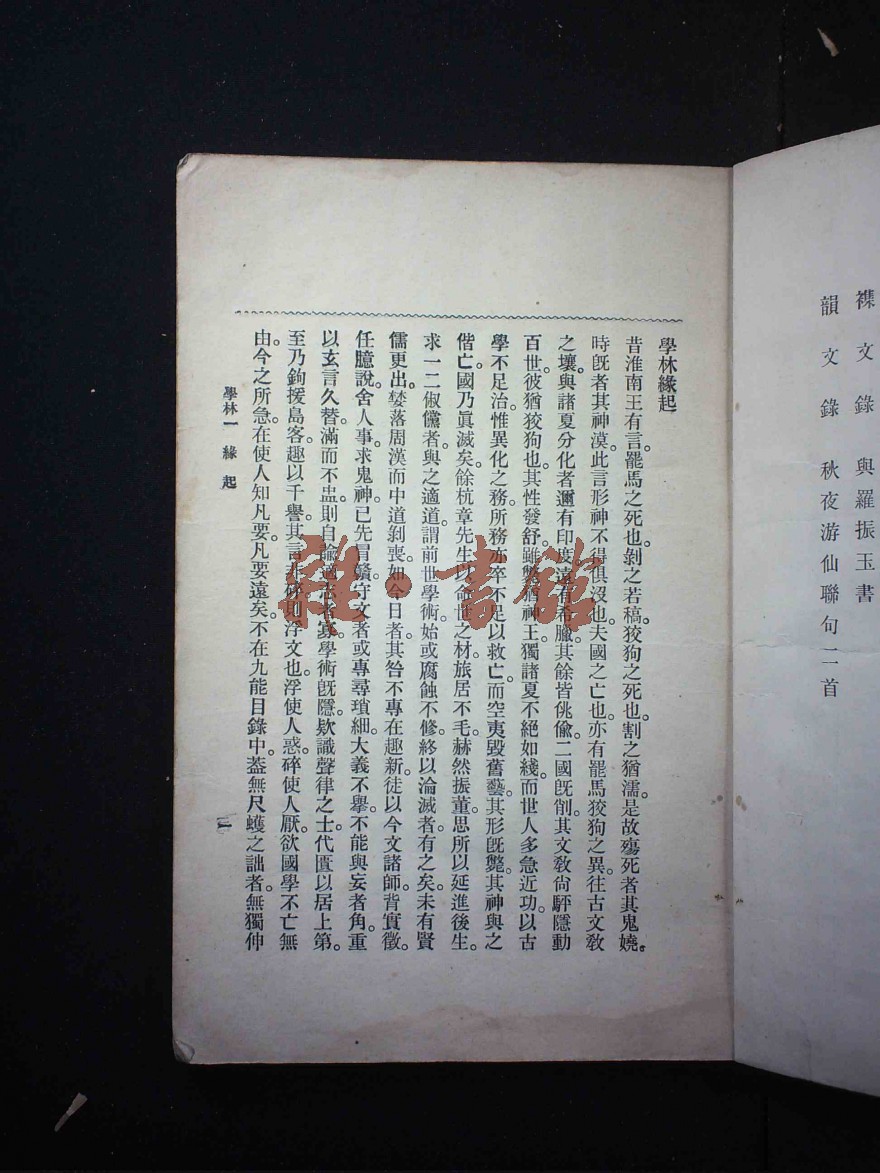 襍文錄 與羅振玉書
韻文錄 秋夜游仙聯句二首
學林緣起
昔淮南王有言。罷馬之死也。剝之若稿。狡狗之死也。割之猶濡。是故殤死者其鬼嬈。
時旣者其神漠。此言形神不得俱沒也。夫國之亡也。亦有罷馬狡狗之異。往古文敎
之壤。與諸夏分化者。邇有印度。遠有希臘。其餘皆佻偸。二國旣削。其文敎尙駍隱動
百世。彼猶狡狗也。其性發舒。雖斃有神王。獨諸夏不絕如綫。而世人多急近功。以古
學不足治。惟異化之務。所務亦卒不足以救亡。而空夷毀舊藝。其形旣斃。其神與之
偕亡。國乃眞滅矣。餘杭章先生以命世之材。旅居不毛。赫然振董。思所以延進後生。
求一二俶儻者與之適道。謂前世學術。始或腐蝕不修。終以淪滅者有之矣。未有賢
儒更出。婪落周漢。而中道剝喪。如今日者。其咎不專在趣新。徒以今文諸師。背實徵。
任臆說。舍人事。求鬼神。已先冒贛。守文者或專尋瑣細。大義不擧。不能與妄者角。重
以玄言久替。滿而不盅。則自論適志者寡。學術旣隱。欵識聲律之士。代匱以居上第。
至乃鉤援島客。趣以千譽。其言非碎則浮文也。浮使人惑。碎使人厭。欲國學不亡無
由。今之所急。在使人知凡要。凡要遠矣。不在九能目錄中。葢無尺蠖之詘者。無獨伸
學林一 緣起
一
雜·書館